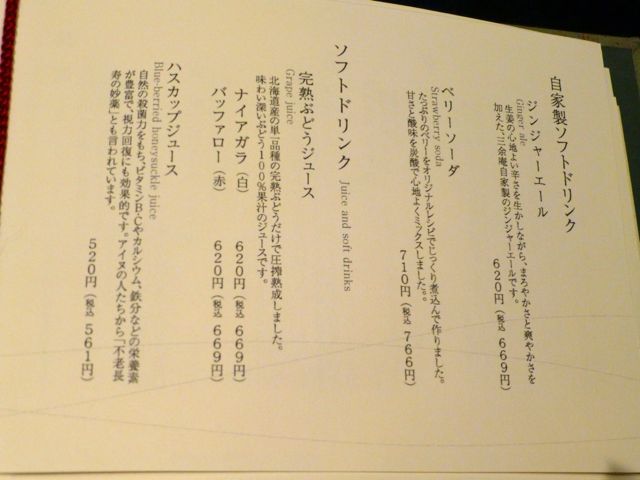 自家製ソフトドリンク
ジンジャーエール
Ginger ale
生姜の心地よい辛さを生かしながら、まろやかさと爽やかさを
加えた、三余庵自家製のジンジャーエールです。
620円（税込 669円）
ベリーソーダ
Strawberry soda
たっぷりのベリーをオリジナルレシピでじっくり煮込んで作りました。
甘さと酸味を炭酸で心地よくミックスしました。。
710円（税込 766円）
ソフトドリンク Juice and soft drinks
完熟ぶどうジュース
Grape juice
北海道産の単一品種の完熟ぶどうだけで圧搾熟成しました。
味わい深いぶどう100％果汁のジュースです。
ナイアガラ（白） 620円（税込 669円）
バッファロー（赤） 620円（税込 669円）
ハスカップジュース
Blue-berried honeysuckle juice
自然の殺菌力をもち、ビタミンB・Cやカルシウム、鉄分などの栄養素
が豊富で、視力回復にも効果的です。アイヌの人たちから「不老長
寿の妙薬」とも言われています。
520円（税込 561円）